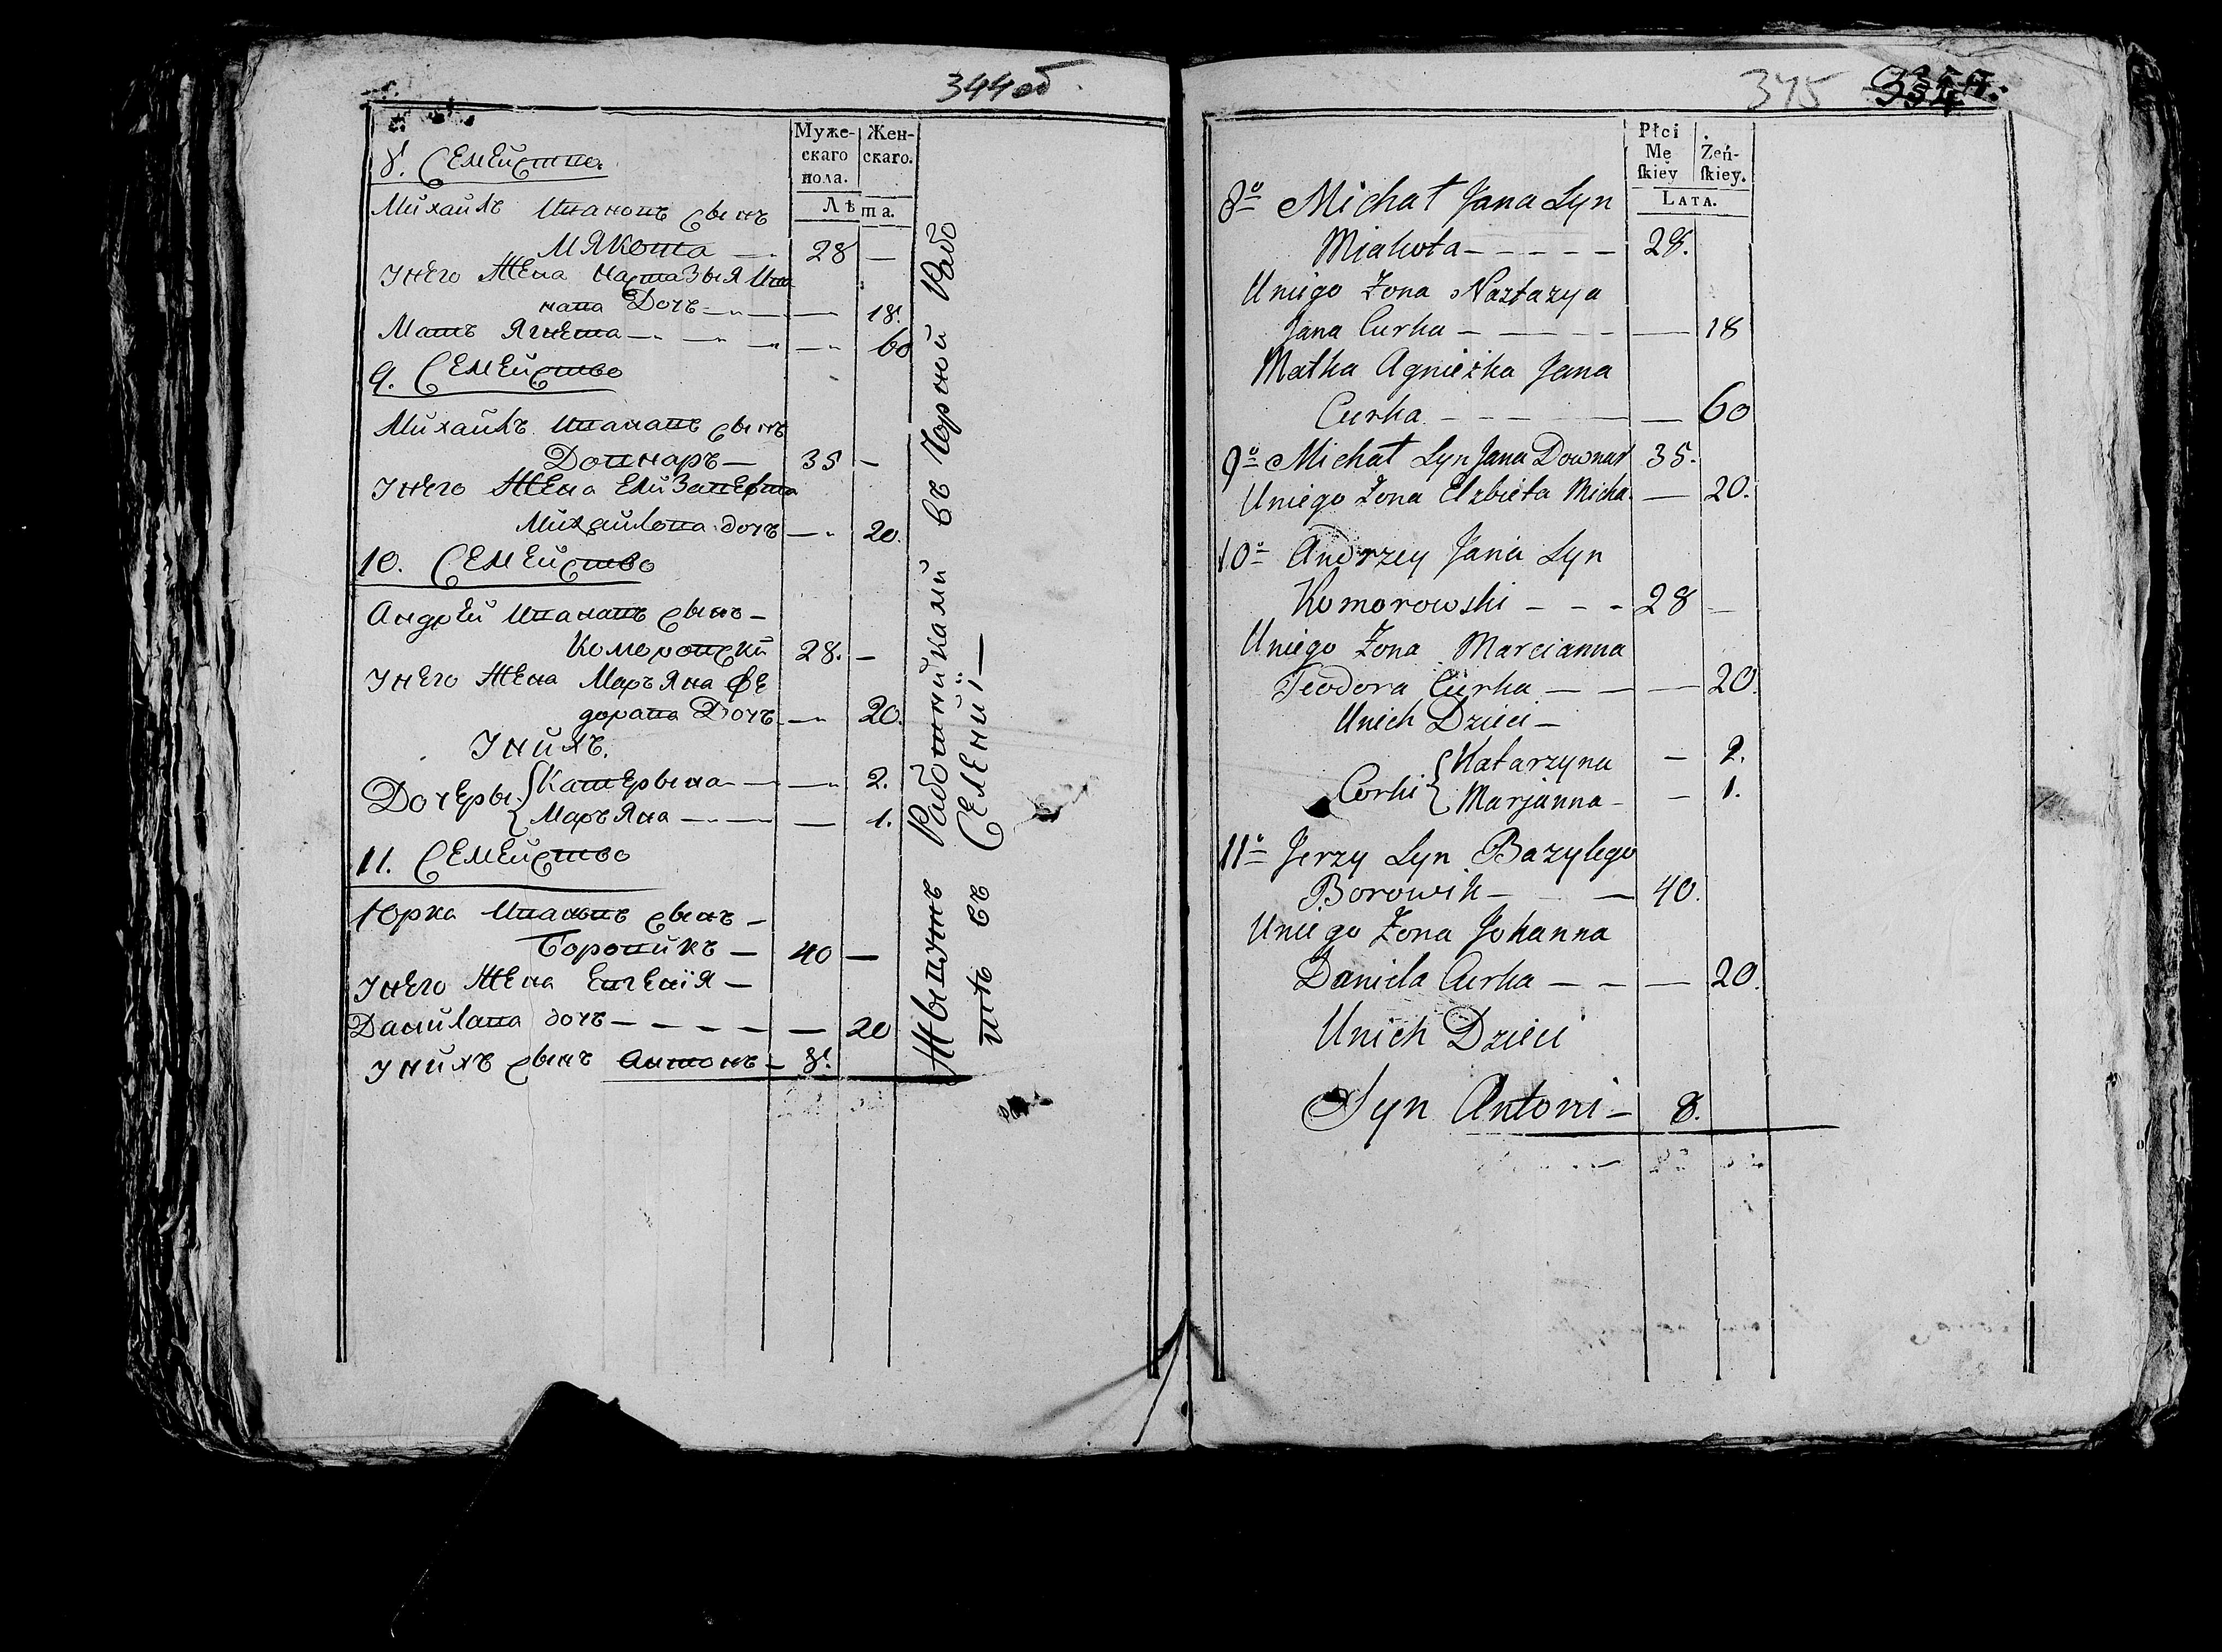 344 об.
Муже-
скаго
пола.
Жен-
скаго.
Лѣта.
8. Семейство
Михайлъ Ивановъ сынъ
Мякота — 28 —
У него Жена Настазыя Ива
нова Дочъ — — 18.
Мать Ягнета — — 60
9. Семейство
Михайлъ Иванавъ сынъ
Довнаръ — 35 —
У него Жена Елизавефта
Михайлова дочъ — 20.
10. Семейство
Андрей Иванавъ сынъ —
Комеровский 28. —
У него Жена Маръяна Фе
дорава Дочъ — 20.
У нихъ.
Дочеры { Катерына — — 2.
{ Маръяна — — 1.
11. Семейство
Юрка Иванывъ сынъ —
Боровикъ — 40 —
У него Жена Евгения —
Данилава дочъ — — — — — 20
У нихъ сынъ Антонъ — 8.
Жывутъ Работниками въ Чорной Рабо
тѣ въ Селении —
345
Płci
Mę
skiey
Żeń-
skiey.
LATA.
8º Michał Jana Syn
Miakota — — — — — 28.
Uniego Żona Nastazya
Jana Curka — — — — — 18
Matka Agnieżka Jana
Curka — — — — — 60
9º Michał Syn Jana Downar 35.
Uniego Żona Elzbieta Micha. — 20.
10º Andrzey Jana Syn
Komorowski — — — 28 —
Uniego Żona Marcianna
Teodora Curka — — — 20.
Unich Dzieci —
Corki { Katarzyna — 2.
{ Marjanna — — 1.
11º Jerzy Syn Bazylego
Borowik — — 40.
Uniego Żona Johanna
Daniela Curka — — — 20.
Unich Dzieci
Syn Antoni — 8.